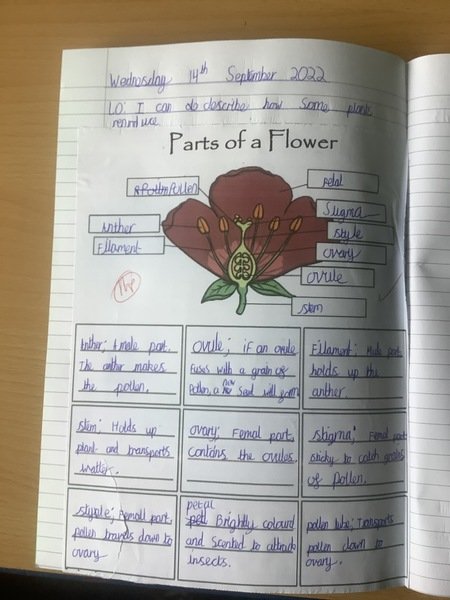 Wednesday 14th September 2022
LO: I can do describe how some plants
reproduce
Parts of a Flower
Pollen
Petal
Stigma
Anther
style
Filament
ovary
ovule
stem
Anther; A male part.
The anther makes
the pollen.
ovule; if an ovule
fuses with a grain of
Pollen, a new seed will form
Filament; Male part
holds up the
anther.
stem; Holds up
plant and transports
watter.
ovary; Femal part,
contans the ovules.
stigma; Femal part
sticky to catch grains
of pollen.
style; Femall part,
pollen down to
ovary
petal
Brightly colourd
and scented to attract
insects.
pollen tube; Transports
pollen down to
ovary.